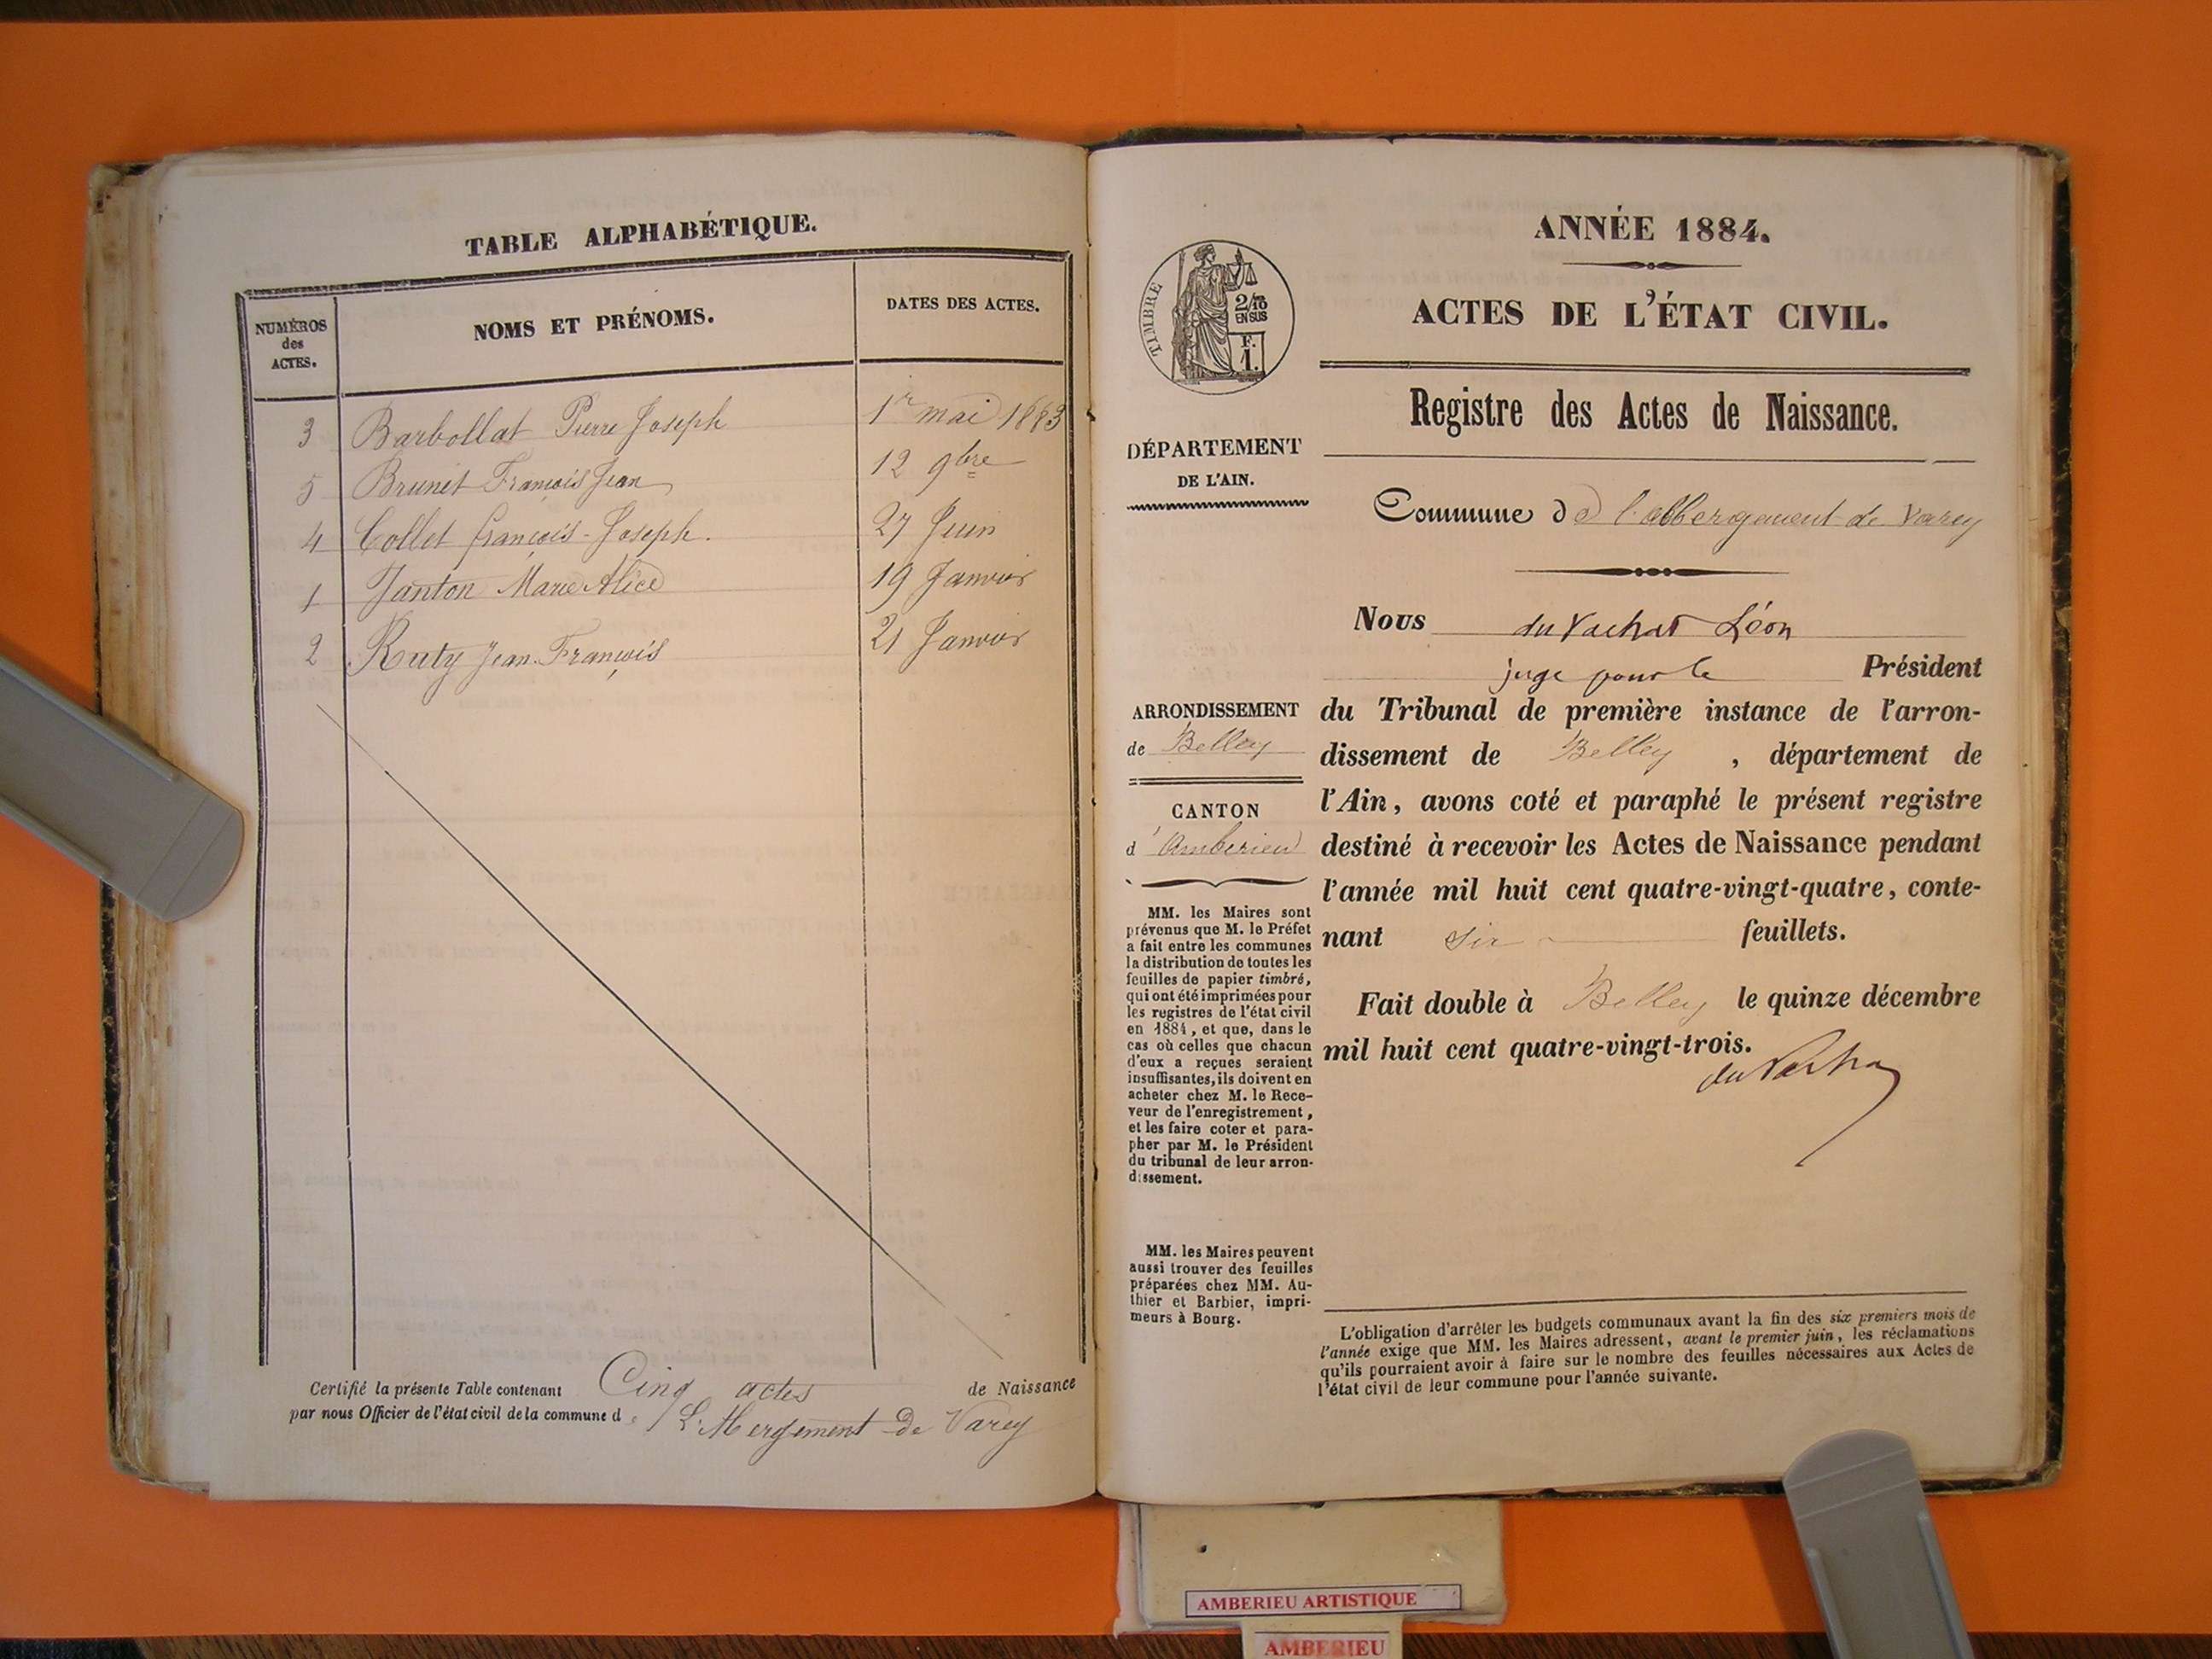 TABLE ALPHABÉTIQUE.
NUMÉROS
des
ACTES.
NOMS ET PRÉNOMS.
DATES DES ACTES.
3 Barbollat Pierre Joseph 1r mai 1883
5 Brunet François Jean 12 9bre
4 Collet françois-Joseph. 27 Juin
1 Janton Marie Alice 19 Janvier
2 Ruty Jean-François 21 Janvier
Certifié la présente Table contenant Cinq actes de Naissance
par nous Officier de l'état civil de la commune de L'Abergement de Varey
ANNÉE 1884.
ACTES DE L'ÉTAT CIVIL.
Registre des Actes de Naissance.
TIMBRE
2/10
EN SUS
F.
1.
DÉPARTEMENT
DE L'AIN.
ARRONDISSEMENT
de Belley
CANTON
d'Amberieu
MM. les Maires sont
prévenus que M. le Préfet
a fait entre les communes
la distribution de toutes les
feuilles de papier timbré,
qui ont été imprimées pour
les registres de l'état civil
en 1884, et que, dans le
cas où celles que chacun
d'eux a reçues seraient
insuffisantes, ils doivent en
acheter chez M. le Rece-
veur de l'enregistrement,
et les faire coter et para-
pher par M. le Président
du tribunal de leur arron-
dissement.
MM. les Maires peuvent
aussi trouver des feuilles
préparées chez MM. Au-
thier et Barbier, impri-
meurs à Bourg.
Commune de l'abbergement de Varey
Nous du Vachat Léon
juge pour le Président
du Tribunal de première instance de l'arron-
dissement de Belley, département de
l'Ain, avons coté et paraphé le présent registre
destiné à recevoir les Actes de Naissance pendant
l'année mil huit cent quatre-vingt-quatre, conte-
nant six feuillets.
Fait double à Belley le quinze décembre
mil huit cent quatre-vingt-trois.
du Vachat
L'obligation d'arrêter les budgets communaux avant la fin des six premiers mois de
l'année exige que MM. les Maires adressent, avant le premier juin, les réclamations
qu'ils pourraient avoir à faire sur le nombre des feuilles nécessaires aux Actes de
l'état civil de leur commune pour l'année suivante.
AMBERIEU ARTISTIQUE
AMBERIEU